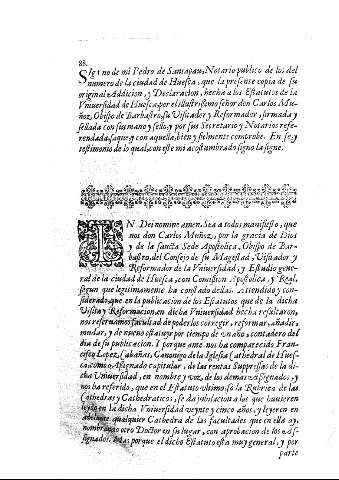 88.
SIgno de mi Pedro de Santapau, Notario publico de los del
numero de la ciudad de Huesca, que la presente copia de su
original Addicion, y Declaracion, hecha a los Estatutos de la
Vniuersidad de Huesca por el illustrissimo señor don Carlos Mu-
ñoz, Obispo de Barbastro, su Visitador y Reformador, firmada y
sellada con su mano y sello, y por sus Secretario y Notarios refe-
rendada, saque, y con aquella, bien y fielmente comprobe. En fe, y
testimonio de lo qual, con este mi acostumbrado signo la signe.
IN Dei nomine amen. Sea a todos manifiesto, que
nos don Carlos Muñoz, por la gracia de Dios
y de la sancta Sede Apostolica, Obispo de Bar-
bastro, del Consejo de su Magestad, Visitador y
Reformador de la Vniuersidad, y Estudio gene-
ral de la ciudad de Huesca, con Comission Apostolica, y Real,
segun que legitimamente ha constado dellas. Attendido y con-
siderado, que en la publicacion de los Estatutos que de la dicha
Visita y Reformacion, en dicha Vniuersidad hecha resultaron,
nos reseruamos facultad de poderlos corregir, reformar, añadir,
mudar, y de nueuo estatuyr por tiempo de vn año, contadero del
dia de su publicacion. Y porque ante nos ha comparecido Fran-
cisco Lopez, Cabañas, Canonigo de la Iglesia Cathedral de Hues-
ca, como Assignado capitular, de las rentas Suppressas de la di-
cha Vniuersidad, en nombre y voz, de los demas Assignados, y
nos ha referido, que en el Estatuto vltimo, so la Rubrica de las
Cathedras y Cathedraticos, se da jubilacion a los que huuieren
leydo en la dicha Vniuersidad veynte y cinco años, y leyeren en
adelante qualquier Cathedra de las facultades que en ella ay,
nombrando otro Doctor en su lugar, con aprobacion de los As-
signados. Mas porque el dicho Estatuto esta muy general, y por
parte